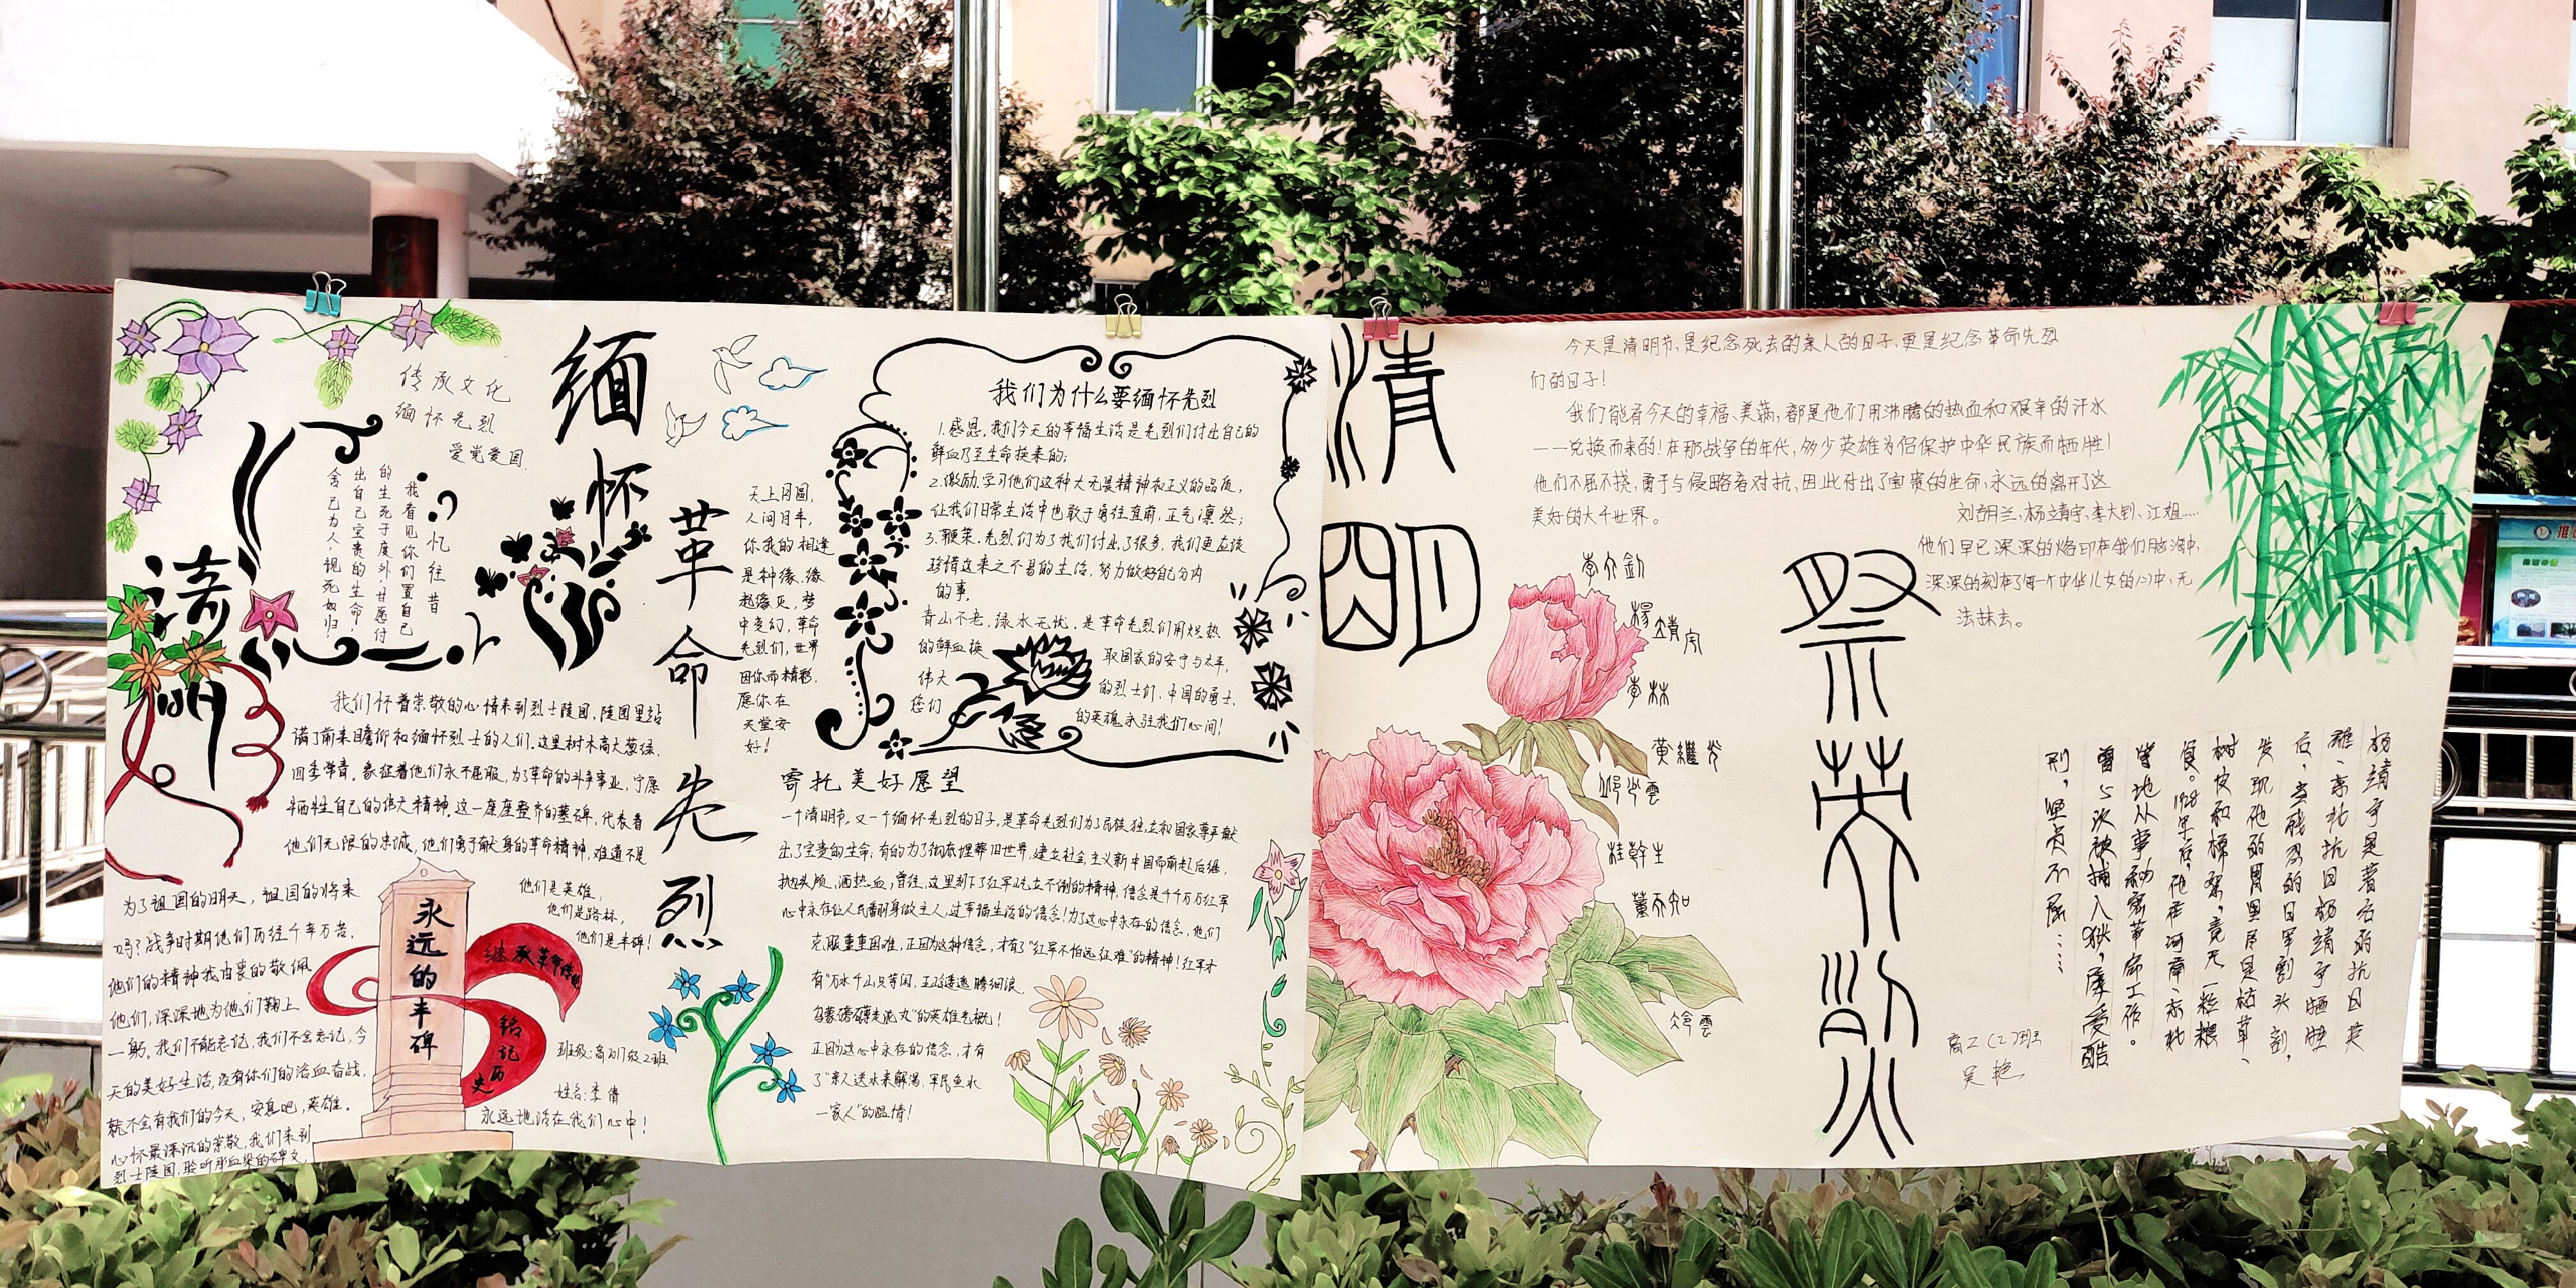 传承文化
缅怀先烈
爱党爱国
缅怀
革命先烈
清明
忆往昔
我看见你们置自己
的生死于度外,甘愿付
出自己宝贵的生命,
舍己为人,视死如归!
我们怀着崇敬的心情来到烈士陵园,陵园里站
满了前来瞻仰和缅怀烈士的人们.这里树木高大葱绿.
四季常青.象征着他们永不屈服,为了革命的斗争事业,宁愿
牺牲自己的伟大精神.这一座座整齐的墓碑,代表着
他们无限的忠诚,他们勇于献身的革命精神,难道不是
为了祖国的明天,祖国的将来
吗?战争时期他们历经千辛万苦.
他们的精神我由衷的敬佩
他们,深深地为他们鞠上
一躬。我们不能忘记,我们不会忘记,今
天的美好生活,没有你们的浴血奋战,
就不会有我们的今天,安息吧,英雄.
心怀最深沉的崇敬,我们来到
烈士陵园,聆听那血染的碑文,
永远的丰碑
继承革命传统
铭记历史
他们是英雄,
他们是路标,
他们是丰碑!
班级:高
级2班
姓名:李倩
永远地活在我们心中!
天上月圆,
人间月半,
你我的相逢
是种缘.缘
起缘灭,梦
中变幻,革命
先烈们,世界
因你而精彩.
愿你在
天堂安
好!
我们为什么要缅怀先烈
1.感恩.我们今天的幸福生活是先烈们付出自己的
鲜血乃至生命换来的;
2.激励.学习他们这种大无畏精神和正义的品质,
让我们日常生活中也敢于勇往直前,正气凛然;
3.鞭策.先烈们为了我们付出了很多,我们更应该
珍惜这来之不易的生活,努力做好自己分内
的事.
青山不老,绿水无忧.是革命先烈们用炽热
的鲜血换 取国家的安宁与太平,
伟大 的烈士们,中国的勇士,
您们 的英魂永驻我们心间!
寄托美好愿望
一个清明节.又一个缅怀先烈的日子,是革命先烈们为了民族独立和国家尊严献
出了宝贵的生命;有的为了彻底埋葬旧世界,建立社会主义新中国而前赴后继.
抛头颅.洒热血,曾经,这里刻下了红军屹立不倒的精神,信念是千千万万红军
心中永存让人民翻身做主人,过幸福生活的信念!为了这心中永存的信念,他们
克服重重困难,正因为这种信念,才有了“红军不怕远征难”的精神!红军才
有“万水千山只等闲,五岭逶迤腾细浪
乌蒙磅礴走泥丸”的英雄气概!
正因为这心中永存的信念,才有
了“亲人送水来解渴,军民鱼水
一家人”的温情!
清明
祭英烈
今天是清明节,是纪念死去的亲人的日子,更是纪念革命先烈
们的日子!
我们能有今天的幸福、美满,都是他们用沸腾的热血和艰辛的汗水
一一兑换而来的!在那战争的年代,多少英雄为侣保护中华民族而牺牲!
他们不屈不挠,勇于与侵略者对抗,因此付出了宝贵的生命,永远的离开了这
美好的大千世界。
刘胡兰、杨靖宇、李大钊、江姐……
他们早已深深的烙印在我们脑海中,
深深的刻在了每一个中华儿女的心中,无
法抹去。
李大釗
楊靖宇
李林
黄繼光
邱少雲
桂幹生
董天知
冷雲
杨靖宇是著名的抗日英
雄、东北抗日杨靖宇牺牲
后,当残忍的日军割头剖,
发现他的胃里尽是枯草、
树皮和棉絮,竟无一粒粮
食。1928年后,他在河南、东北
等地从事秘密革命工作。
曾5次被捕入狱,屡受酷
刑,坚贞不屈……
高二(2)班
吴艳